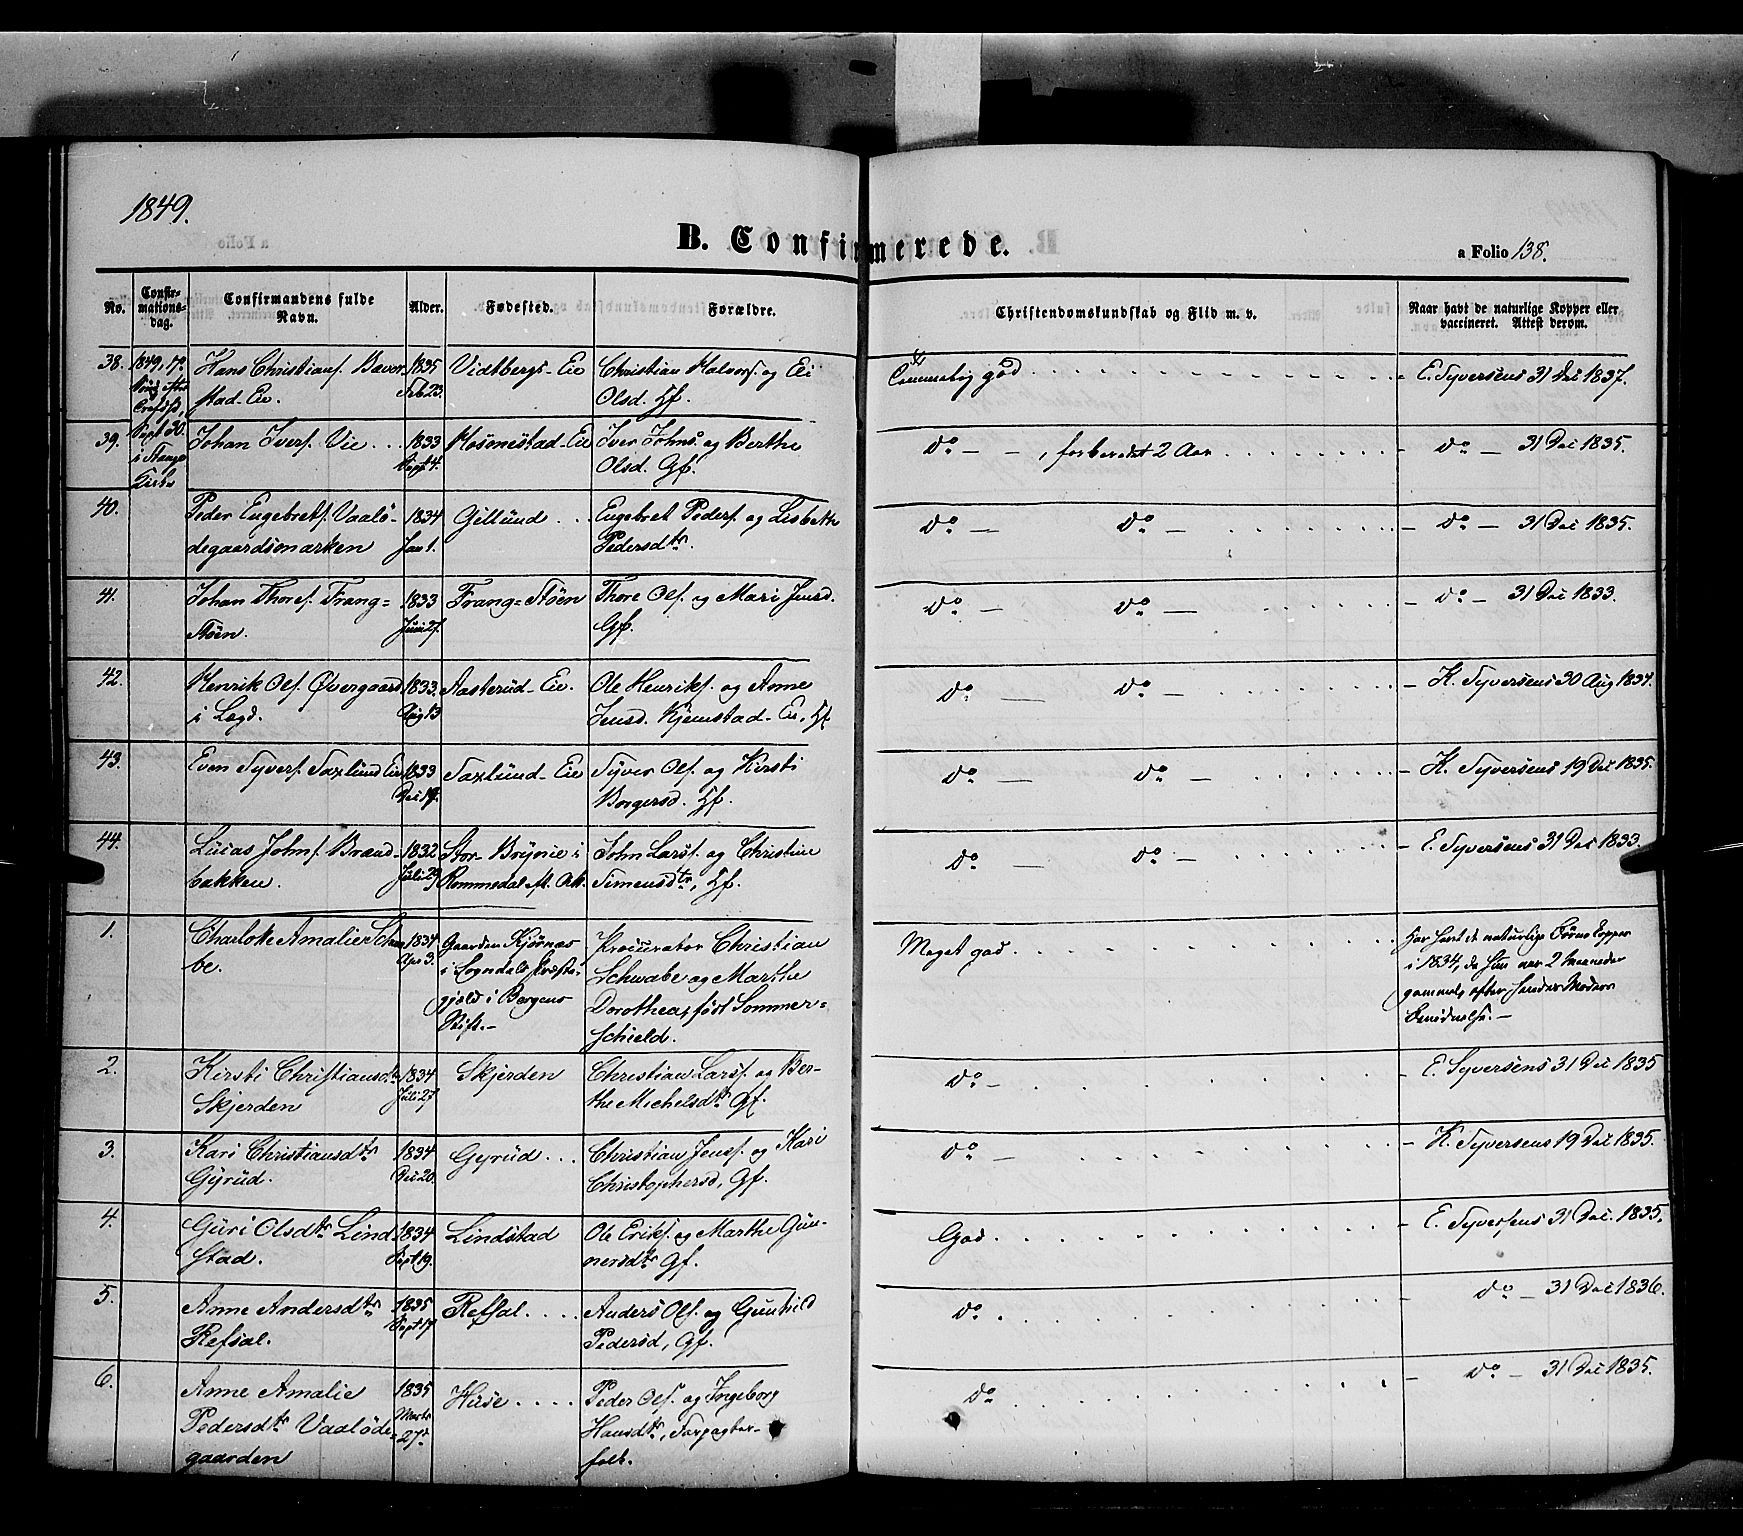 1849.
B. Confirmerede.
a Folio 138.
No.
Confir-
mations-
dag.
Confirmandens fulde
Navn.
Alder.
Fødested.
Forældre.
Christendomskundskab og Flid m. v.
Naar havt de naturlige Kopper eller
vaccineret. Attest derom.
38.
1849, 17de
Sønd. efter
Trefds,
Sept 30.
i Stange
Kirke
Hans Christians. Bævor-
stad-Eie.
1835
Feb 23.
Vidtbergs-Eie
Christian Halvors. og Eli
Olsd. Hf.
Temmelig god
E. Syversens 31 Dec 1837.
39.
Johan Ivers. Vie
1833
Sept 4.
Rosenestad-Eie
Iver Johns. og Berthe
Olsd. Gf.
do - , forberedet 2 Aar
do - 31 Dec 1835.
40.
Peder Engebrets. Vaalø-
degaardsmarken
1834
Jan 1.
Gillund
Engebret Peders. og Lisbeth
Pedersdtr.
do - do -
do - 31 Dec 1835.
41.
Johan Thores. Frang=
Støen.
1833
Juni 27.
Frang=Støen
Thore Ols. og Mari Jensd.
Gf.
do - do -
do - 31 Dec 1833.
42.
Henrik Ols. Øvergaard
i Lægd.
1833.
Aug 13
Aasterud-Eie.
Ole Henriks. og Anne
Jensd. Kjemstad-Eie, Hf
do - do -
K. Syversens 30 Aug 1834.
43.
Even Syvers. Saxlund Eie
1833
Dec 19.
Saxlund-Eie
Syver Ols. og Kirsti
Borgersd. Hf.
do - do -
K. Syversens 19 Dec 1835.
44.
Lucas Johns. Brænd-
bakken.
1832
Juli 29
Stor-Brynie i
Rommedal
John Lars. og Christine
Simensdtr, Hf.
do - do -
E. Syversens 31 Dec 1833.
1.
Charlotte Amalie Schwa
be.
1834
Apr 3.
Gaarden Kjørnæs
i Sogndals Præste-
gjeld i Bergens
Stift.-
Procurator Christian
Schwabe og Marthe
Dorothea, født Sommer=
schield.
Meget god
Har havt de naturlige Børnekopper
i 1834, da hun var 2 Maaneder
gammel, efter hendes Moders
Bevidnelse.-
2.
Kirsti Christiansdtr
Skjerden
1834
Juli 27
Skjerden
Christian Lars. og Ber-
the Michelsdtr Gf.
do -
E. Syversens 31 Dec 1835
3.
Kari Christiansdtr
Gyrud.
1834
Dec 20.
Gyrud
Christian Jens. og Kari
Christophersd, Gf.
do -
K. Syversens 19 Dec 1835.
4.
Guri Olsdtr Lind
stad.
1834
Sept 19.
Lindstad
Ole Eriks. og Marthe Gun-
nersdtr Gf.
God
E. Syversens 31 Dec. 1835.
5.
Anne Andersdtr
Refsal.
1835
Sept 17
Refsal
Anders Ols. og Gunhild
Pedersd, Gf.
do
do - 31 Dec 1836.
6.
Anne Amalie
Pedersdtr Vaaløde=
gaarden
1835
Marts
27de
Huse
Peder Ols. og Ingeborg
Hansdtr, Forpagter-
folk.
do
do - 31 Dec 1835.